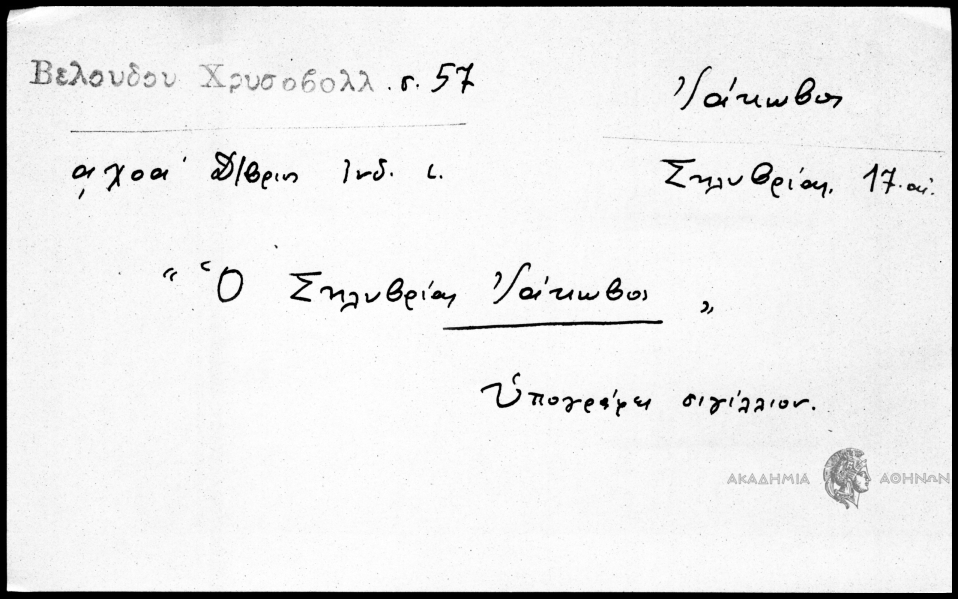 Βελουδου Χρυσοβολλ. σ. 57
Ἰάκωβος
͵αχοα' Δ/βριος Ἰνδ. ι.
Σηλυβρίας, 17. αἰ.
“ Ὁ Σηλυβρίας Ἰάκωβος „
Ὑπογράφει σιγίλλιον.
ΑΚΑΔΗΜΙΑ ΑΘΗΝΩΝ